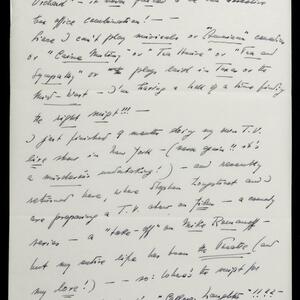 Richard" - it never failed to be the
box office combination! -
Since I can't play musicals or "American" comedies
or "Caine Mutiny" or "Tea House" or "Tea and
Sympathy" or plays laid in Texas or the
Mid-West - I'm having a hell of a time finding
the right script!!! -
I just finished 9 months doing my own T.V.
live show in New York - (never again!! it's
a murderous undertaking!) - and recently
returned here, where Stephen Longstreet and I
are preparing a T.V. show on film - a comedy
series - a "take-off" on Mike Romanoff -
but my entire life has been the Theatre (and
my love!) - - so: where's the script for
me